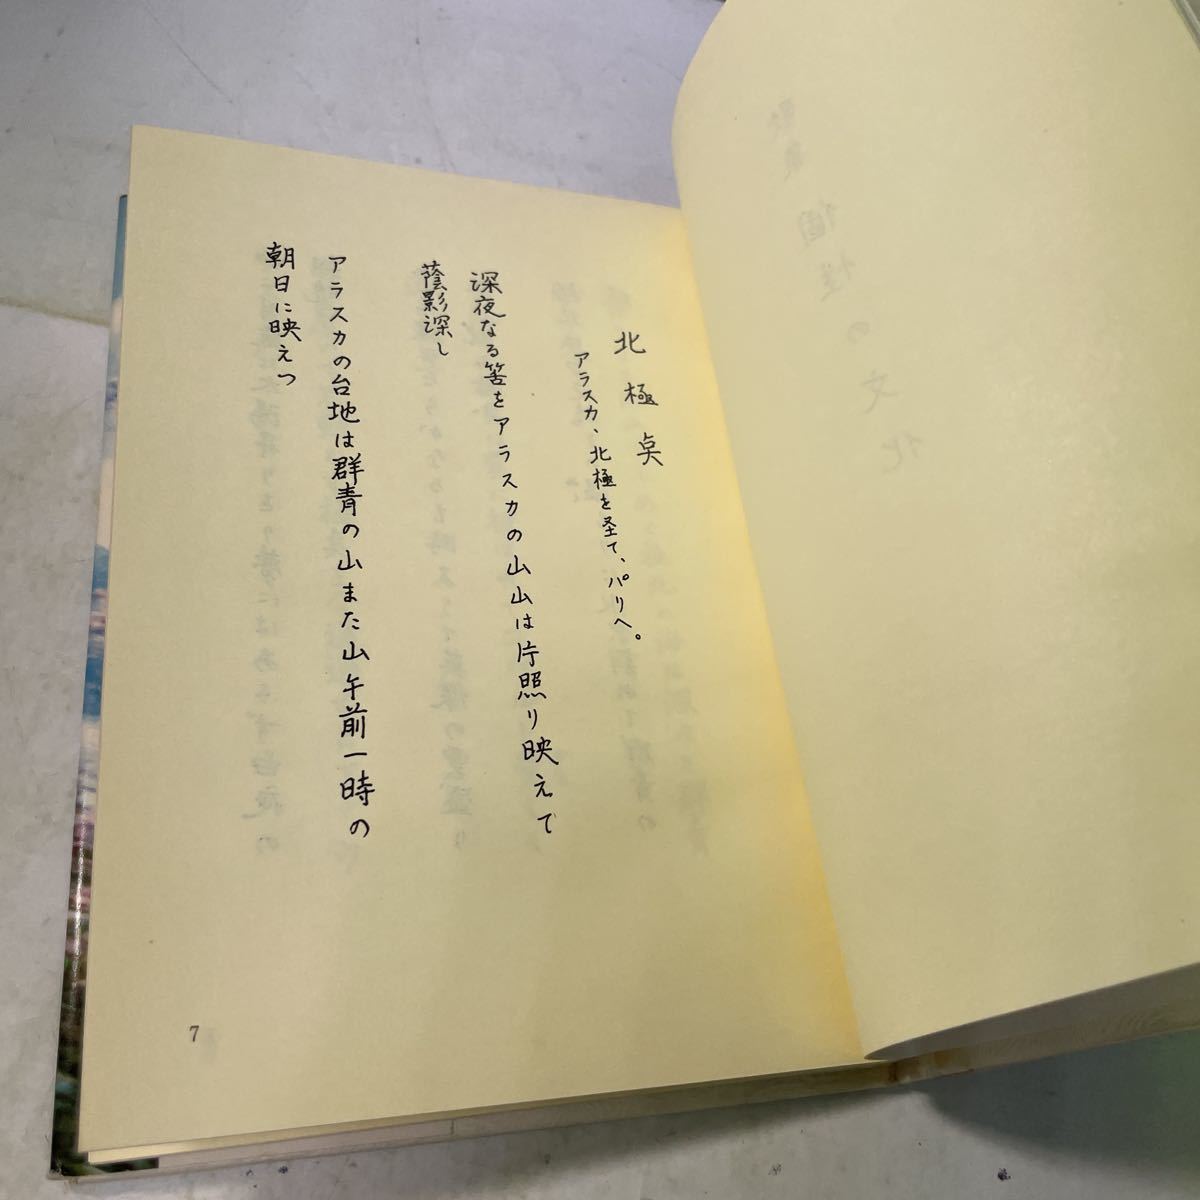 北極点
アラスカ、北極を圣て、パリへ。
深夜なる筈をアラスカの山山は片照り映えで
蔭影深し
アラスカの台地は群青の山また山午前一時の
朝日に映えつ
7